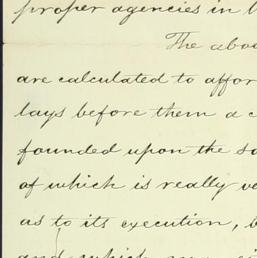 proper agencies in
The abov
are calculated to affor
lays before them a c
founded upon the so
of which is really ve
as to its execution, b
and which